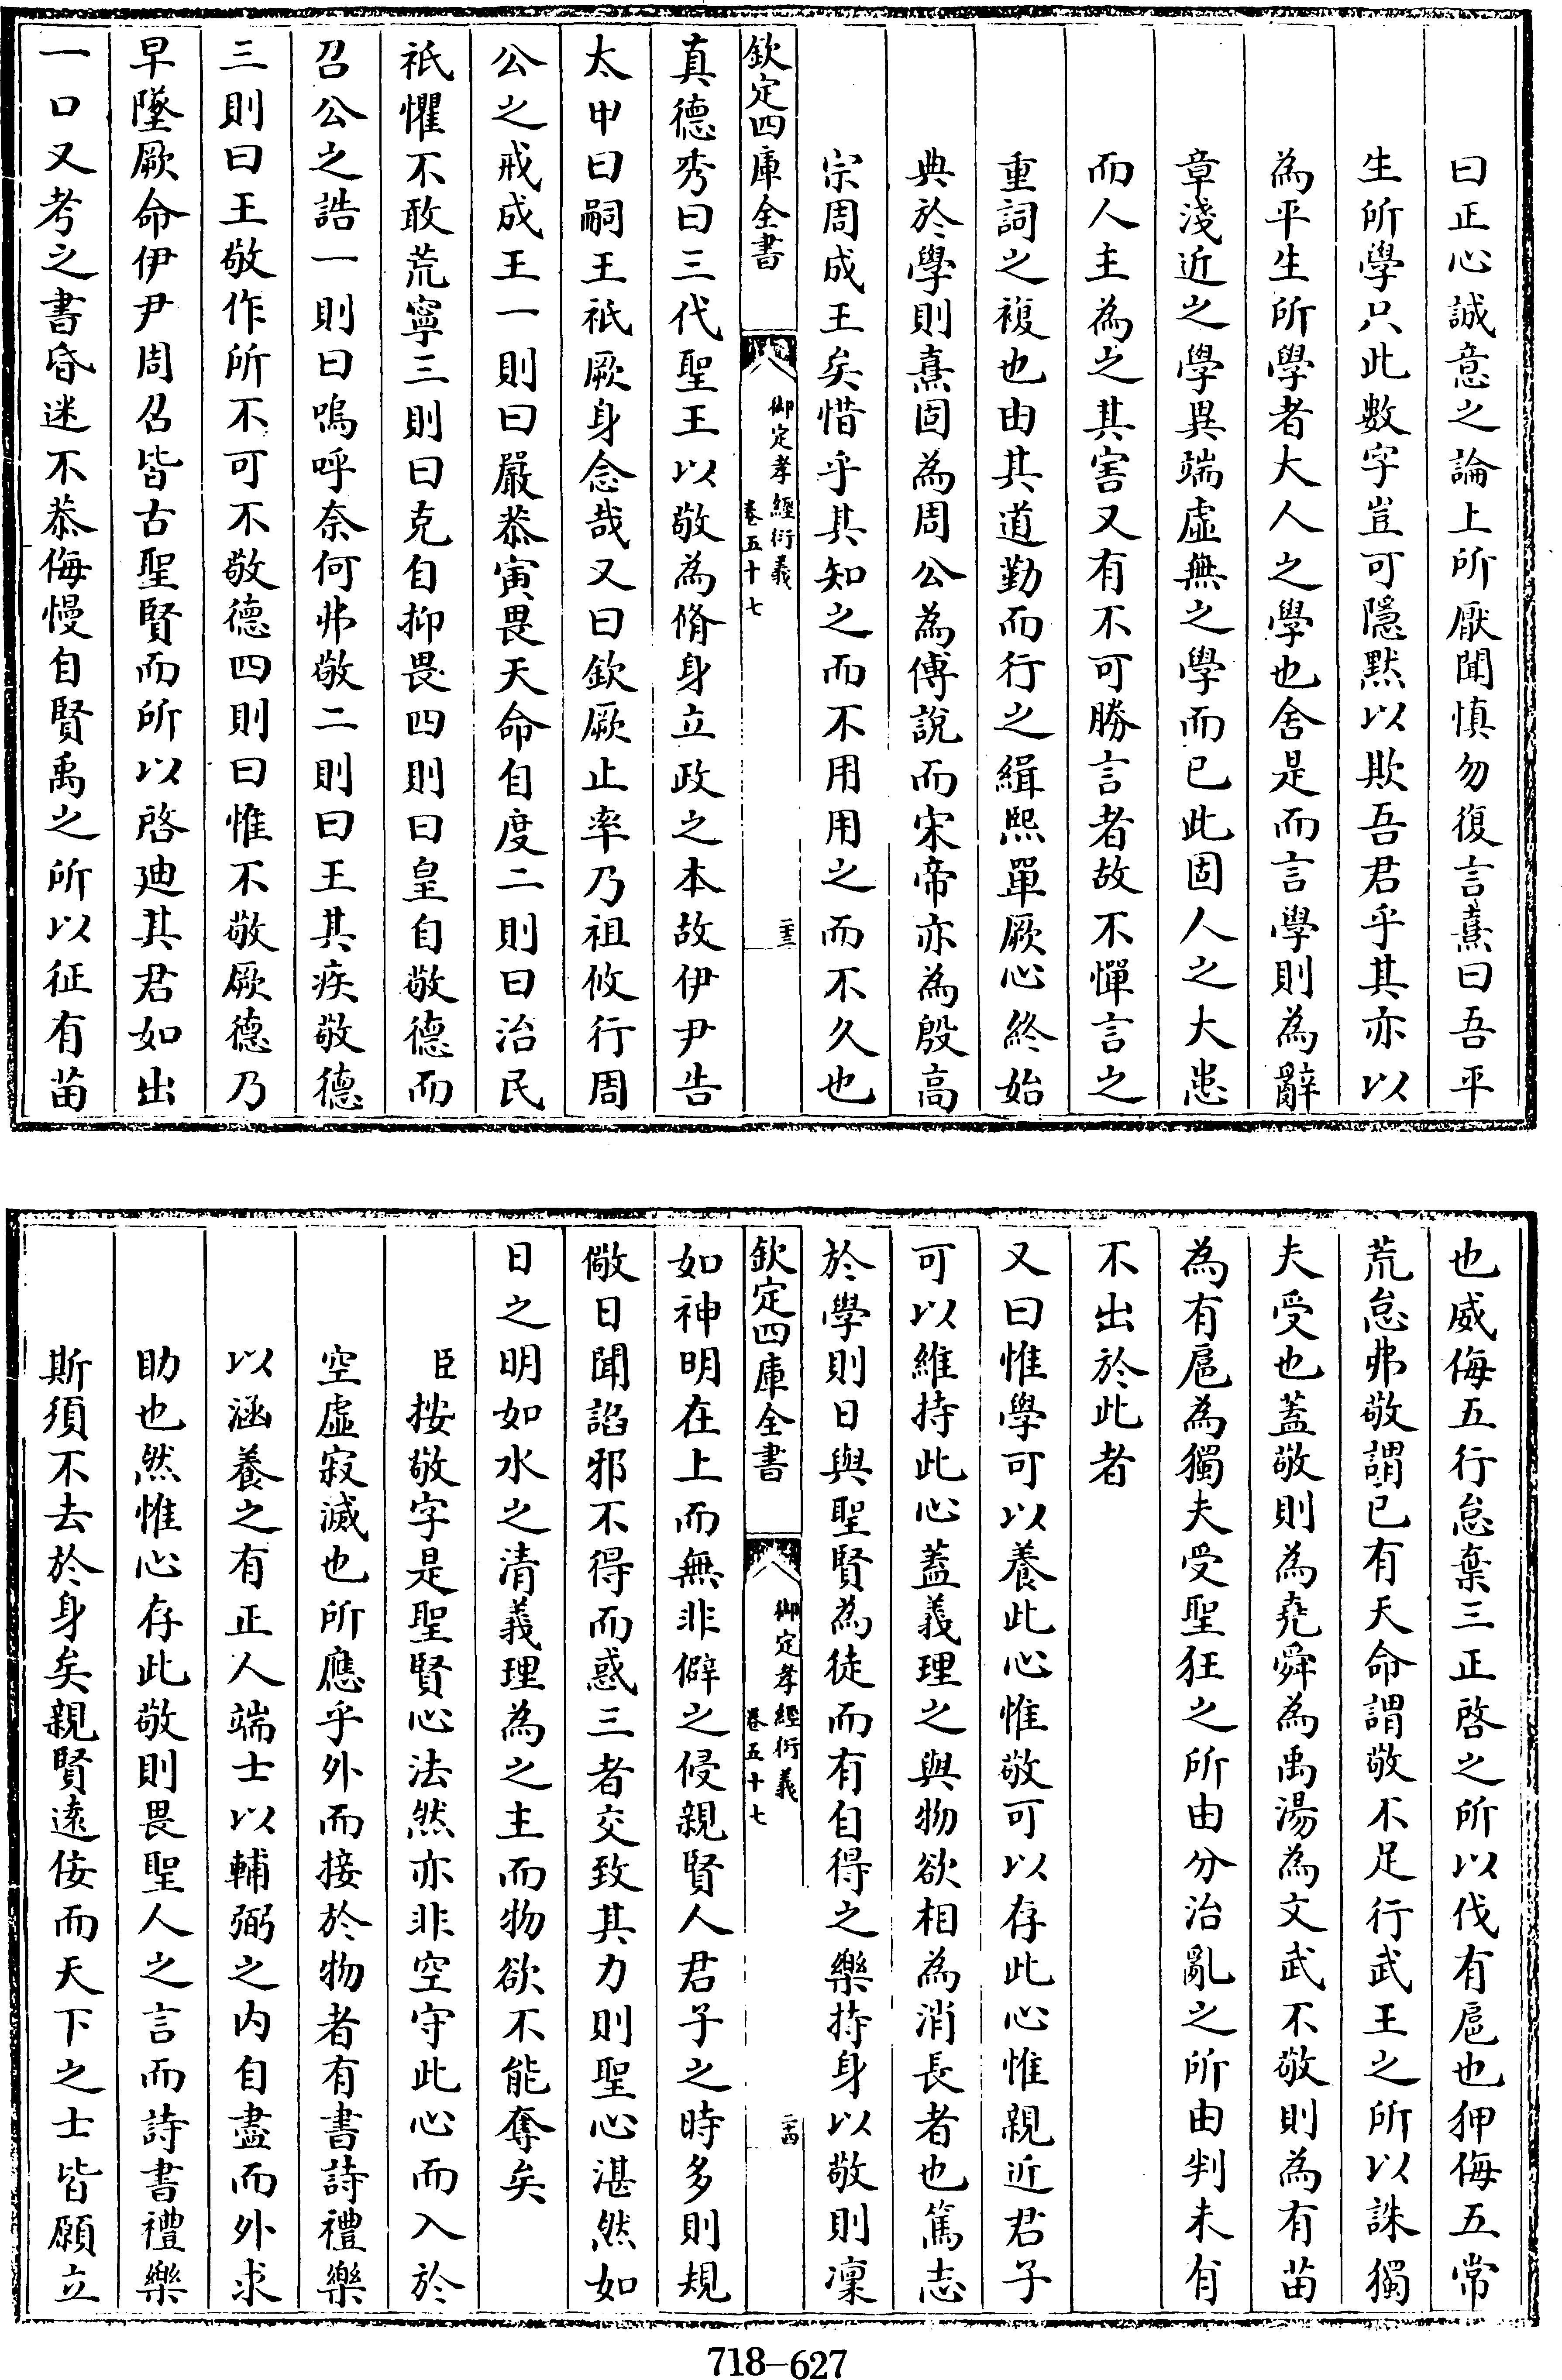 曰正心誠意之論上所厭聞慎勿復言熹曰吾平
生所學只此數字豈可隱黙以欺吾君乎其亦以
為平生所學者大人之學也舍是而言學則為辭
章淺近之學異端虚無之學而已此固人之大患
而人主為之其害又有不可勝言者故不憚言之
重詞之複也由其道勤而行之緝熙單厥心終始
典於學則熹固為周公為傅說而宋帝亦為殷高
宗周成王矣惜乎其知之而不用用之而不久也
欽定四庫全書
御定孝經衍義
卷五十七
二十三
真德秀曰三代聖王以敬為脩身立政之本故伊尹告
太甲曰嗣王祇厥身念哉又曰欽厥止率乃祖攸行周
公之戒成王一則曰嚴恭寅畏天命自度二則曰治民
祇懼不敢荒寧三則曰克自抑畏四則曰皇自敬德而
召公之誥一則曰嗚呼奈何弗敬二則曰王其疾敬德
三則曰王敬作所不可不敬德四則曰惟不敬厥德乃
早墜厥命伊尹周召皆古聖賢而所以啓廸其君如出
一口又考之書昏迷不恭侮慢自賢禹之所以征有苗
也威侮五行怠棄三正啓之所以伐有扈也狎侮五常
荒怠弗敬謂已有天命謂敬不足行武王之所以誅獨
夫受也蓋敬則為堯舜為禹湯為文武不敬則為有苗
為有扈為獨夫受聖狂之所由分治亂之所由判未有
不出於此者
又曰惟學可以養此心惟敬可以存此心惟親近君子
可以維持此心蓋義理之與物欲相為消長者也篤志
於學則日與聖賢為徒而有自得之樂持身以敬則凜
欽定四庫全書
御定孝經衍義
卷五十七
二十四
如神明在上而無非僻之侵親賢人君子之時多則規
儆日聞諂邪不得而惑三者交致其力則聖心湛然如
日之明如水之清義理為之主而物欲不能奪矣
臣按敬字是聖賢心法然亦非空守此心而入於
空虛寂滅也所應乎外而接於物者有書詩禮樂
以涵養之有正人端士以輔弼之内自盡而外求
助也然惟心存此敬則畏聖人之言而詩書禮樂
斯須不去於身矣親賢遠佞而天下之士皆願立
718-627